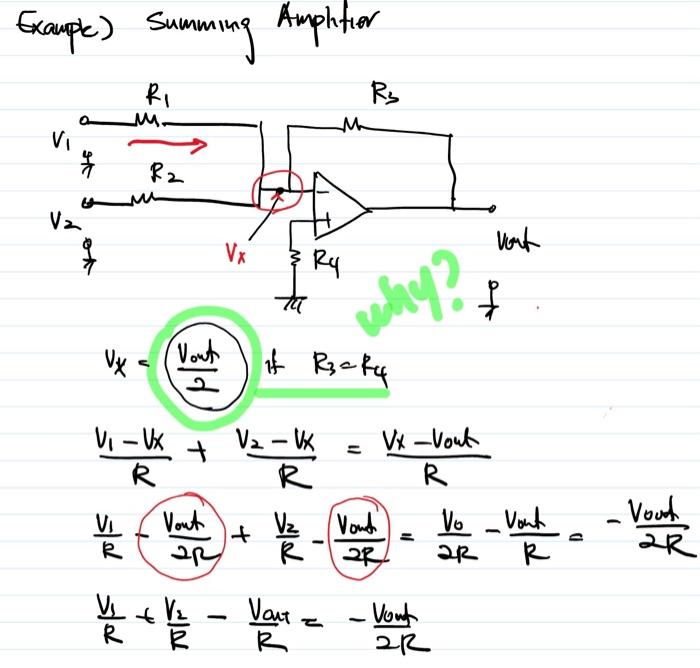 Example) Summing Amplifier
R1
R3
V1
R2
V2
Vx
R4
Vout
why?
Vx = Vout/2 if R3 = R4
(V1 - Vx)/R + (V2 - Vx)/R = (Vx - Vout)/R
V1/R - Vout/2R + V2/R - Vout/2R = Vo/2R - Vout/R = - Vout/2R
V1/R + V2/R - Vout/R = - Vout/2R